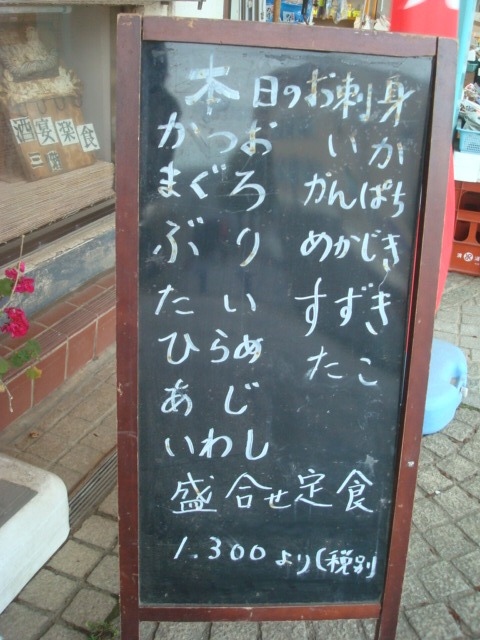 本日のお刺身
かつお いか
まぐろ かんぱち
ぶり めかじき
たい すずき
ひらめ たこ
あじ
いわし
盛合せ定食
1.300より(税別
酒宴楽食